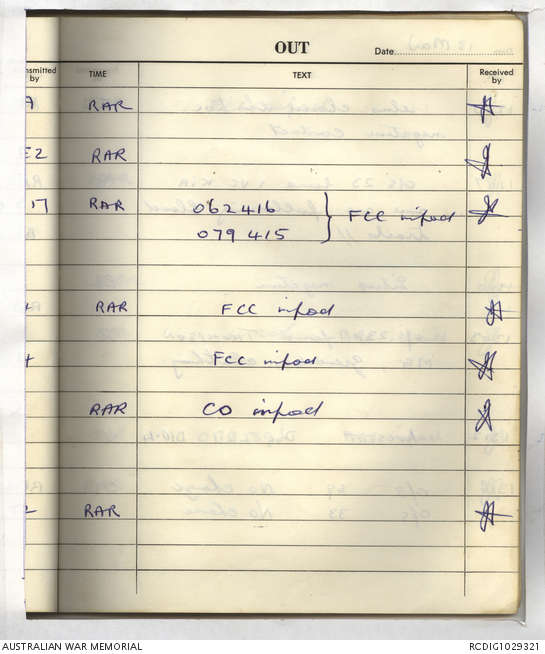 OUT
Date
nsmitted by TIME TEXT Received by
RAR
E2 RAR
17 RAR 062416 } FCC infod
079415
RAR FCC infod
FCC infod
RAR CO infod
RAR
AUSTRALIAN WAR MEMORIAL RCDIG1029321